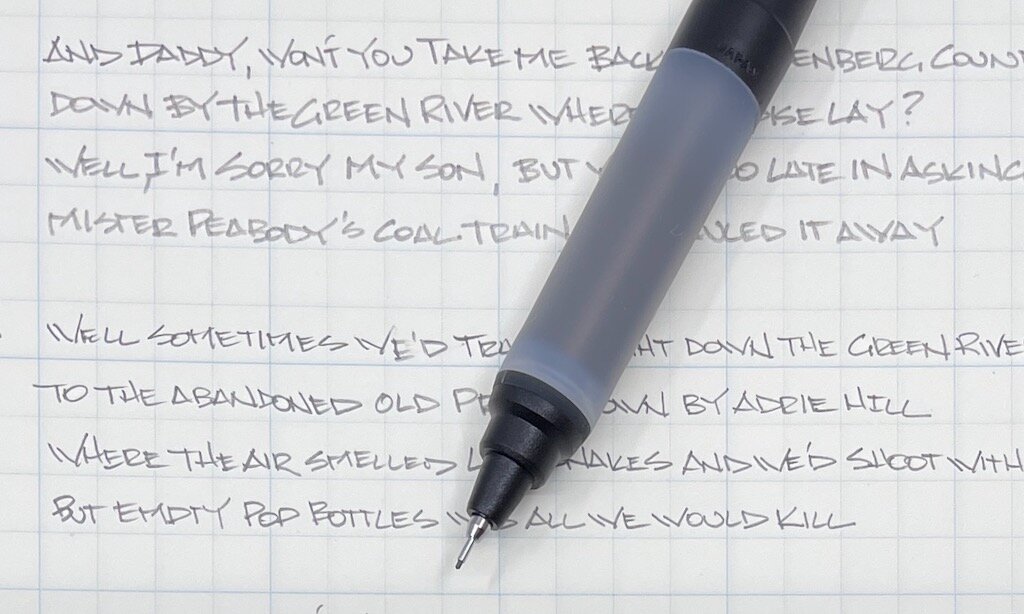 AND DADDY, WON'T YOU TAKE ME BACK ENBERG, COUN
DOWN BY THE GREEN RIVER WHERE ISE LAY?
WELL, I'M SORRY MY SON, BUT Y O LATE IN ASKING
MISTER PEABODY'S COAL TRAIN AULED IT AWAY
WELL SOMETIMES WE'D TRA HT DOWN THE GREEN RIVE
TO THE ABANDONED OLD PR OWN BY ADRIE HILL
WHERE THE AIR SMELLED L NAKES AND WE'D SHOOT WITH
BUT EMPTY POP BOTTLES W S ALL WE WOULD KILL